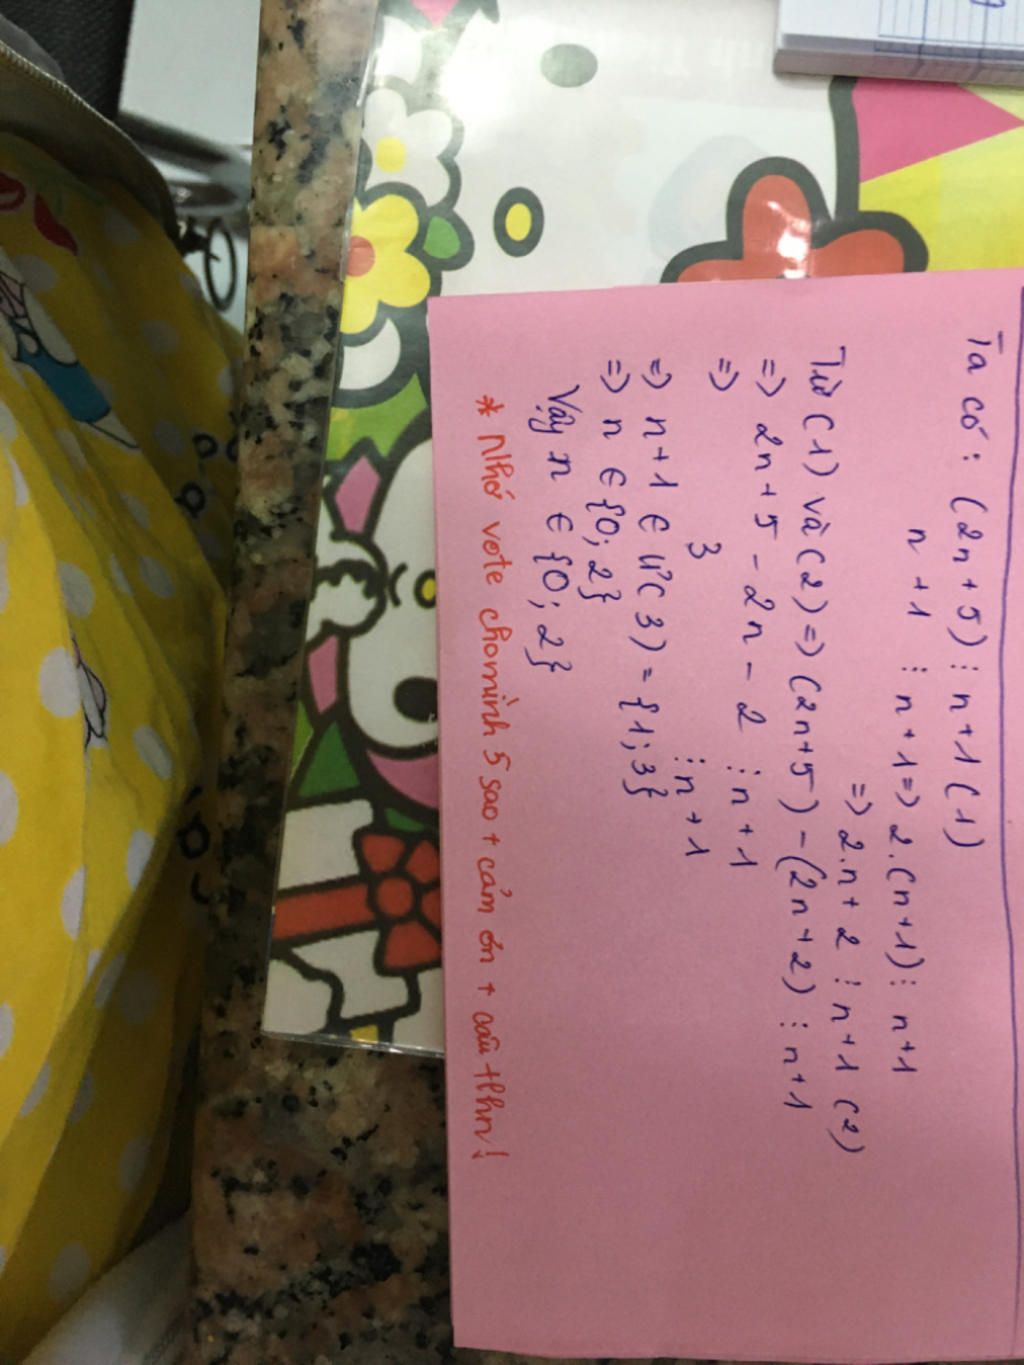 Ta có: (2n+5) ⋮ n+1 (1)
n+1 ⋮ n+1 => 2.(n+1) ⋮ n+1
=> 2.n+2 ⋮ n+1 (2)
Từ (1) và (2) => (2n+5) - (2n+2) ⋮ n+1
=> 2n+5 - 2n - 2 ⋮ n+1
=> 3 ⋮ n+1
=> n+1 ∈ Ư(3) = {1;3}
=> n ∈ {0;2}
Vậy n ∈ {0;2}
* Nhớ vote cho mình 5 sao + cảm ơn + câu tlhn!